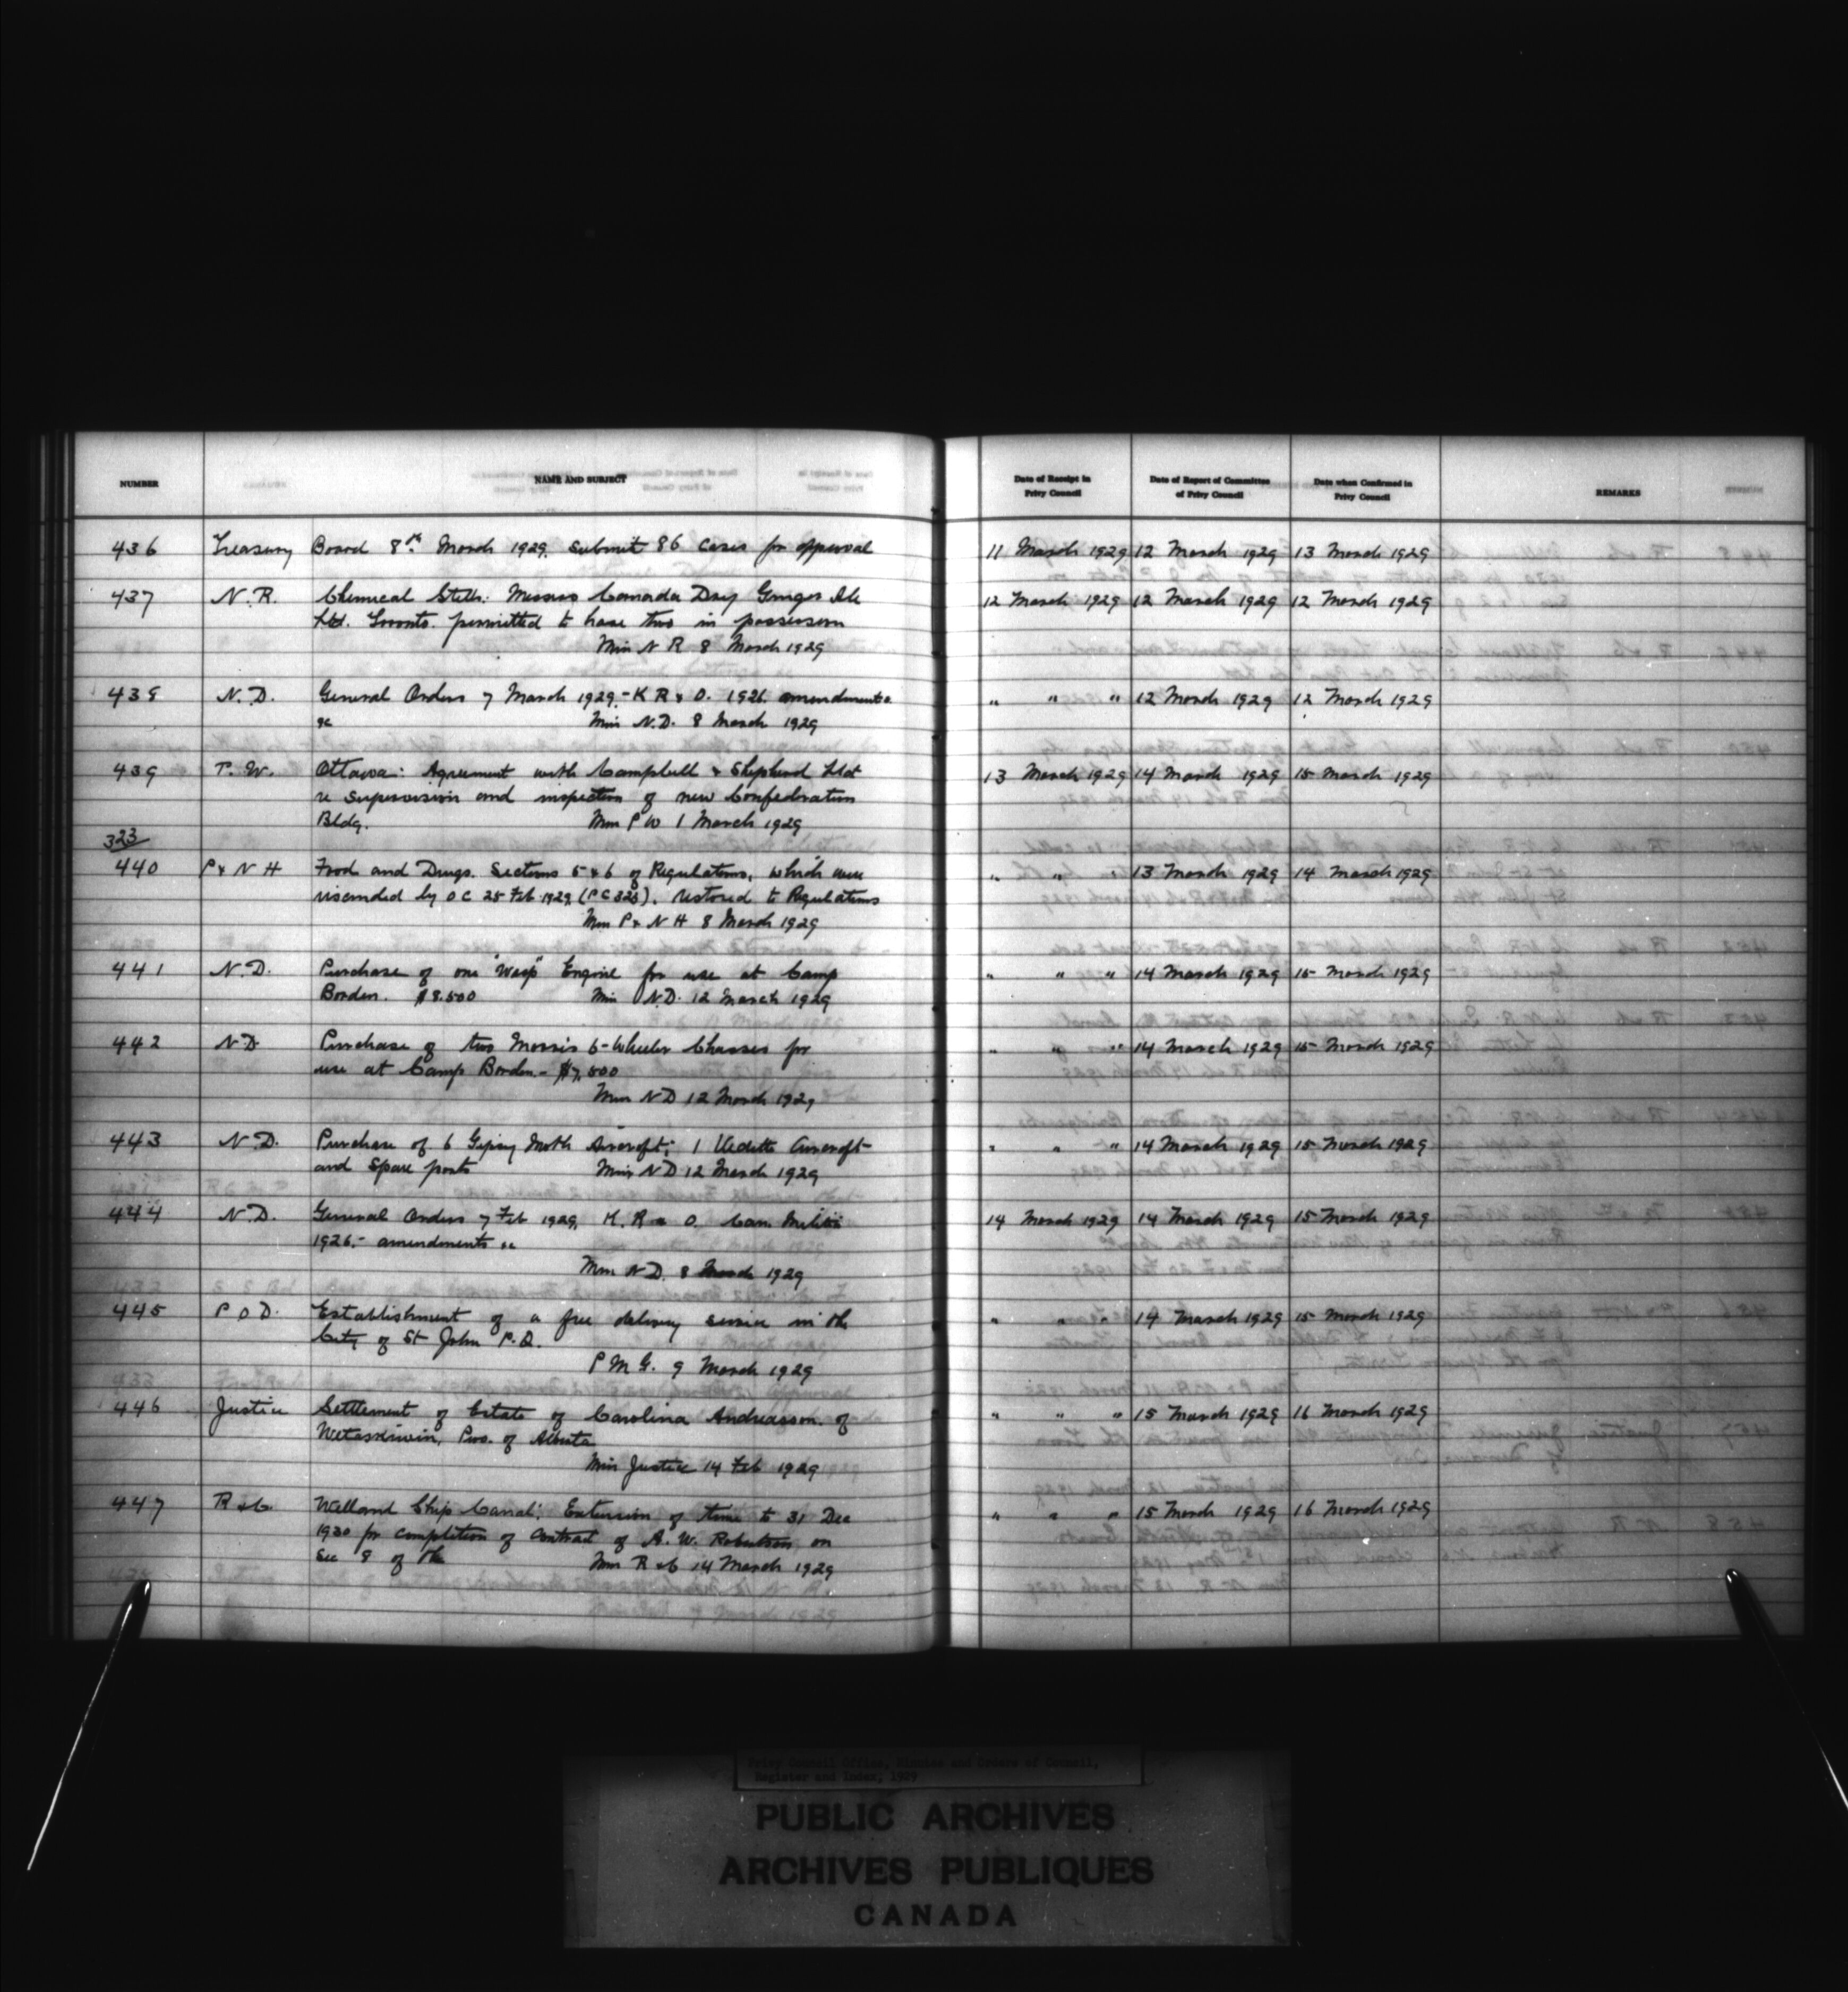 NUMBER NAME AND SUBJECT Date of Receipt in Privy Council Date of Report of Committee of Privy Council Date when Confirmed in Privy Council REMARKS
436 Treasury Board 8th March 1929. Submit 86 cases for approval 11 March 1929 12 March 1929 13 March 1929
437 N.R. Chemical Stills: Messrs Canada Dry Ginger Ale 12 March 1929 12 March 1929 12 March 1929
Ltd. Toronto. permitted to have two in possession
Min N R 8 March 1929
438 N.D. General Orders 7 March 1929 - K R & O. 1926. amendments " " " 12 March 1929 12 March 1929
&c Min N.D. 8 March 1929
439 P.W. Ottawa: Agreement with Campbell & Shepherd Ltd 13 March 1929 14 March 1929 15 March 1929
re supervision and inspection of new Confederation
Bldg. Min P W 1 March 1929
323
440 P & N H Food and Drugs. Sections 5 & 6 of Regulations, which were " " " 13 March 1929 14 March 1929
rescinded by O C 25 Feb 1929 (P C 323). restored to Regulations
Min P & N H 8 March 1929
441 N.D. Purchase of one "Wasp" Engine for use at Camp " " " 14 March 1929 15 March 1929
Borden. $8.500 Min N.D. 12 March 1929
442 N.D. Purchase of two Morris 6-Wheeler Chasses for " " " 14 March 1929 15 March 1929
use at Camp Borden - $7,500
Min N D 12 March 1929
443 N.D. Purchase of 6 Gipsy Moth Aircraft; 1 Vedette Aircraft " " " 14 March 1929 15 March 1929
and spare parts Min N D 12 March 1929
444 N.D. General Orders 7 Feb 1929, K. R & O. Can. Militia 14 March 1929 14 March 1929 15 March 1929
1926 - amendments &c
Min N.D. 8 March 1929
445 P O D. Establishment of a free delivery service in the " " " 14 March 1929 15 March 1929
City of St John P.Q.
P M G. 9 March 1929
446 Justice Settlement of Estate of Carolina Andreasson. of " " " 15 March 1929 16 March 1929
Wetaskiwin, Prov. of Alberta
Min Justice 14 Feb 1929
447 R & C. Welland Ship Canal; Extension of time to 31 Dec " " " 15 March 1929 16 March 1929
1930 for completion of contract of A. W. Robertson on
Sec 8 of the Min R & C 14 March 1929
Privy Council Office, Minutes and Orders of Council,
Register and Index, 1929
PUBLIC ARCHIVES
ARCHIVES PUBLIQUES
CANADA